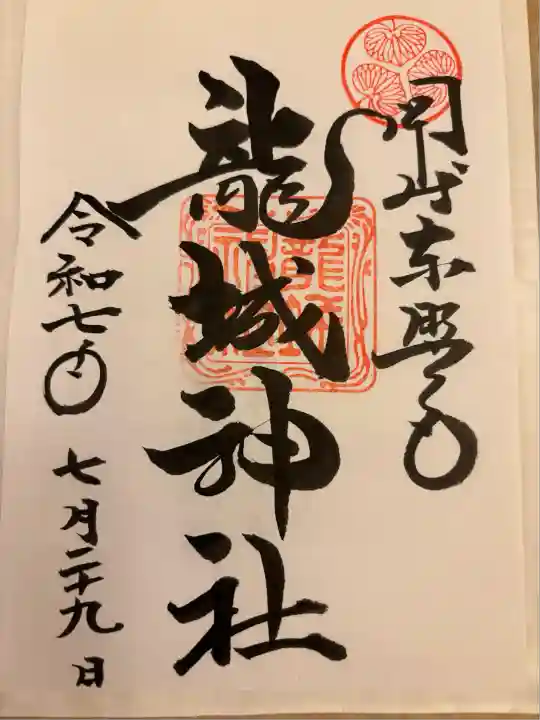 開運東照宮
龍城神社
令和七年 七月二十九日